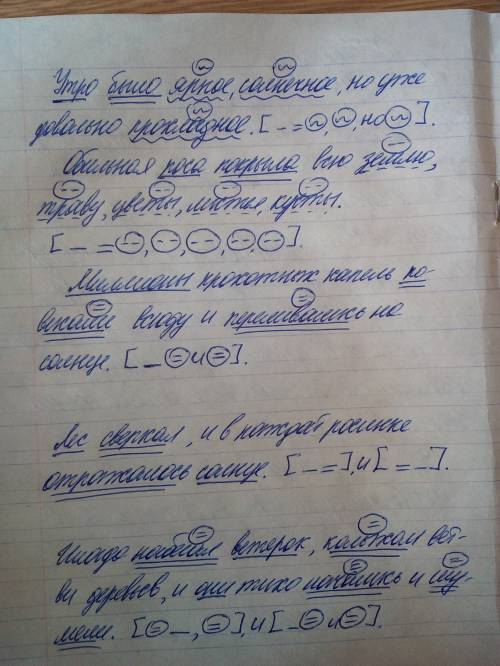 Утро было яркое, солнечное, но уже
довольно прохладное. [ – = ~, ~, но ~ ].
Обильная роса покрыла всю землю,
траву, цветы, листья, кусты.
[ – = --, --, --, --, -- ].
Миллионы крохотных капель по-
висали всюду и переливались на
солнце. [ – = и = ].
Лес сверкал, и в каждой росинке
отражалось солнце. [ – = ], и [ = – ].
Иногда набегал ветерок, колыхал вет-
ви деревьев, и они тихо качались и шу-
мели. [ = –, = ], и [ – = и = ].